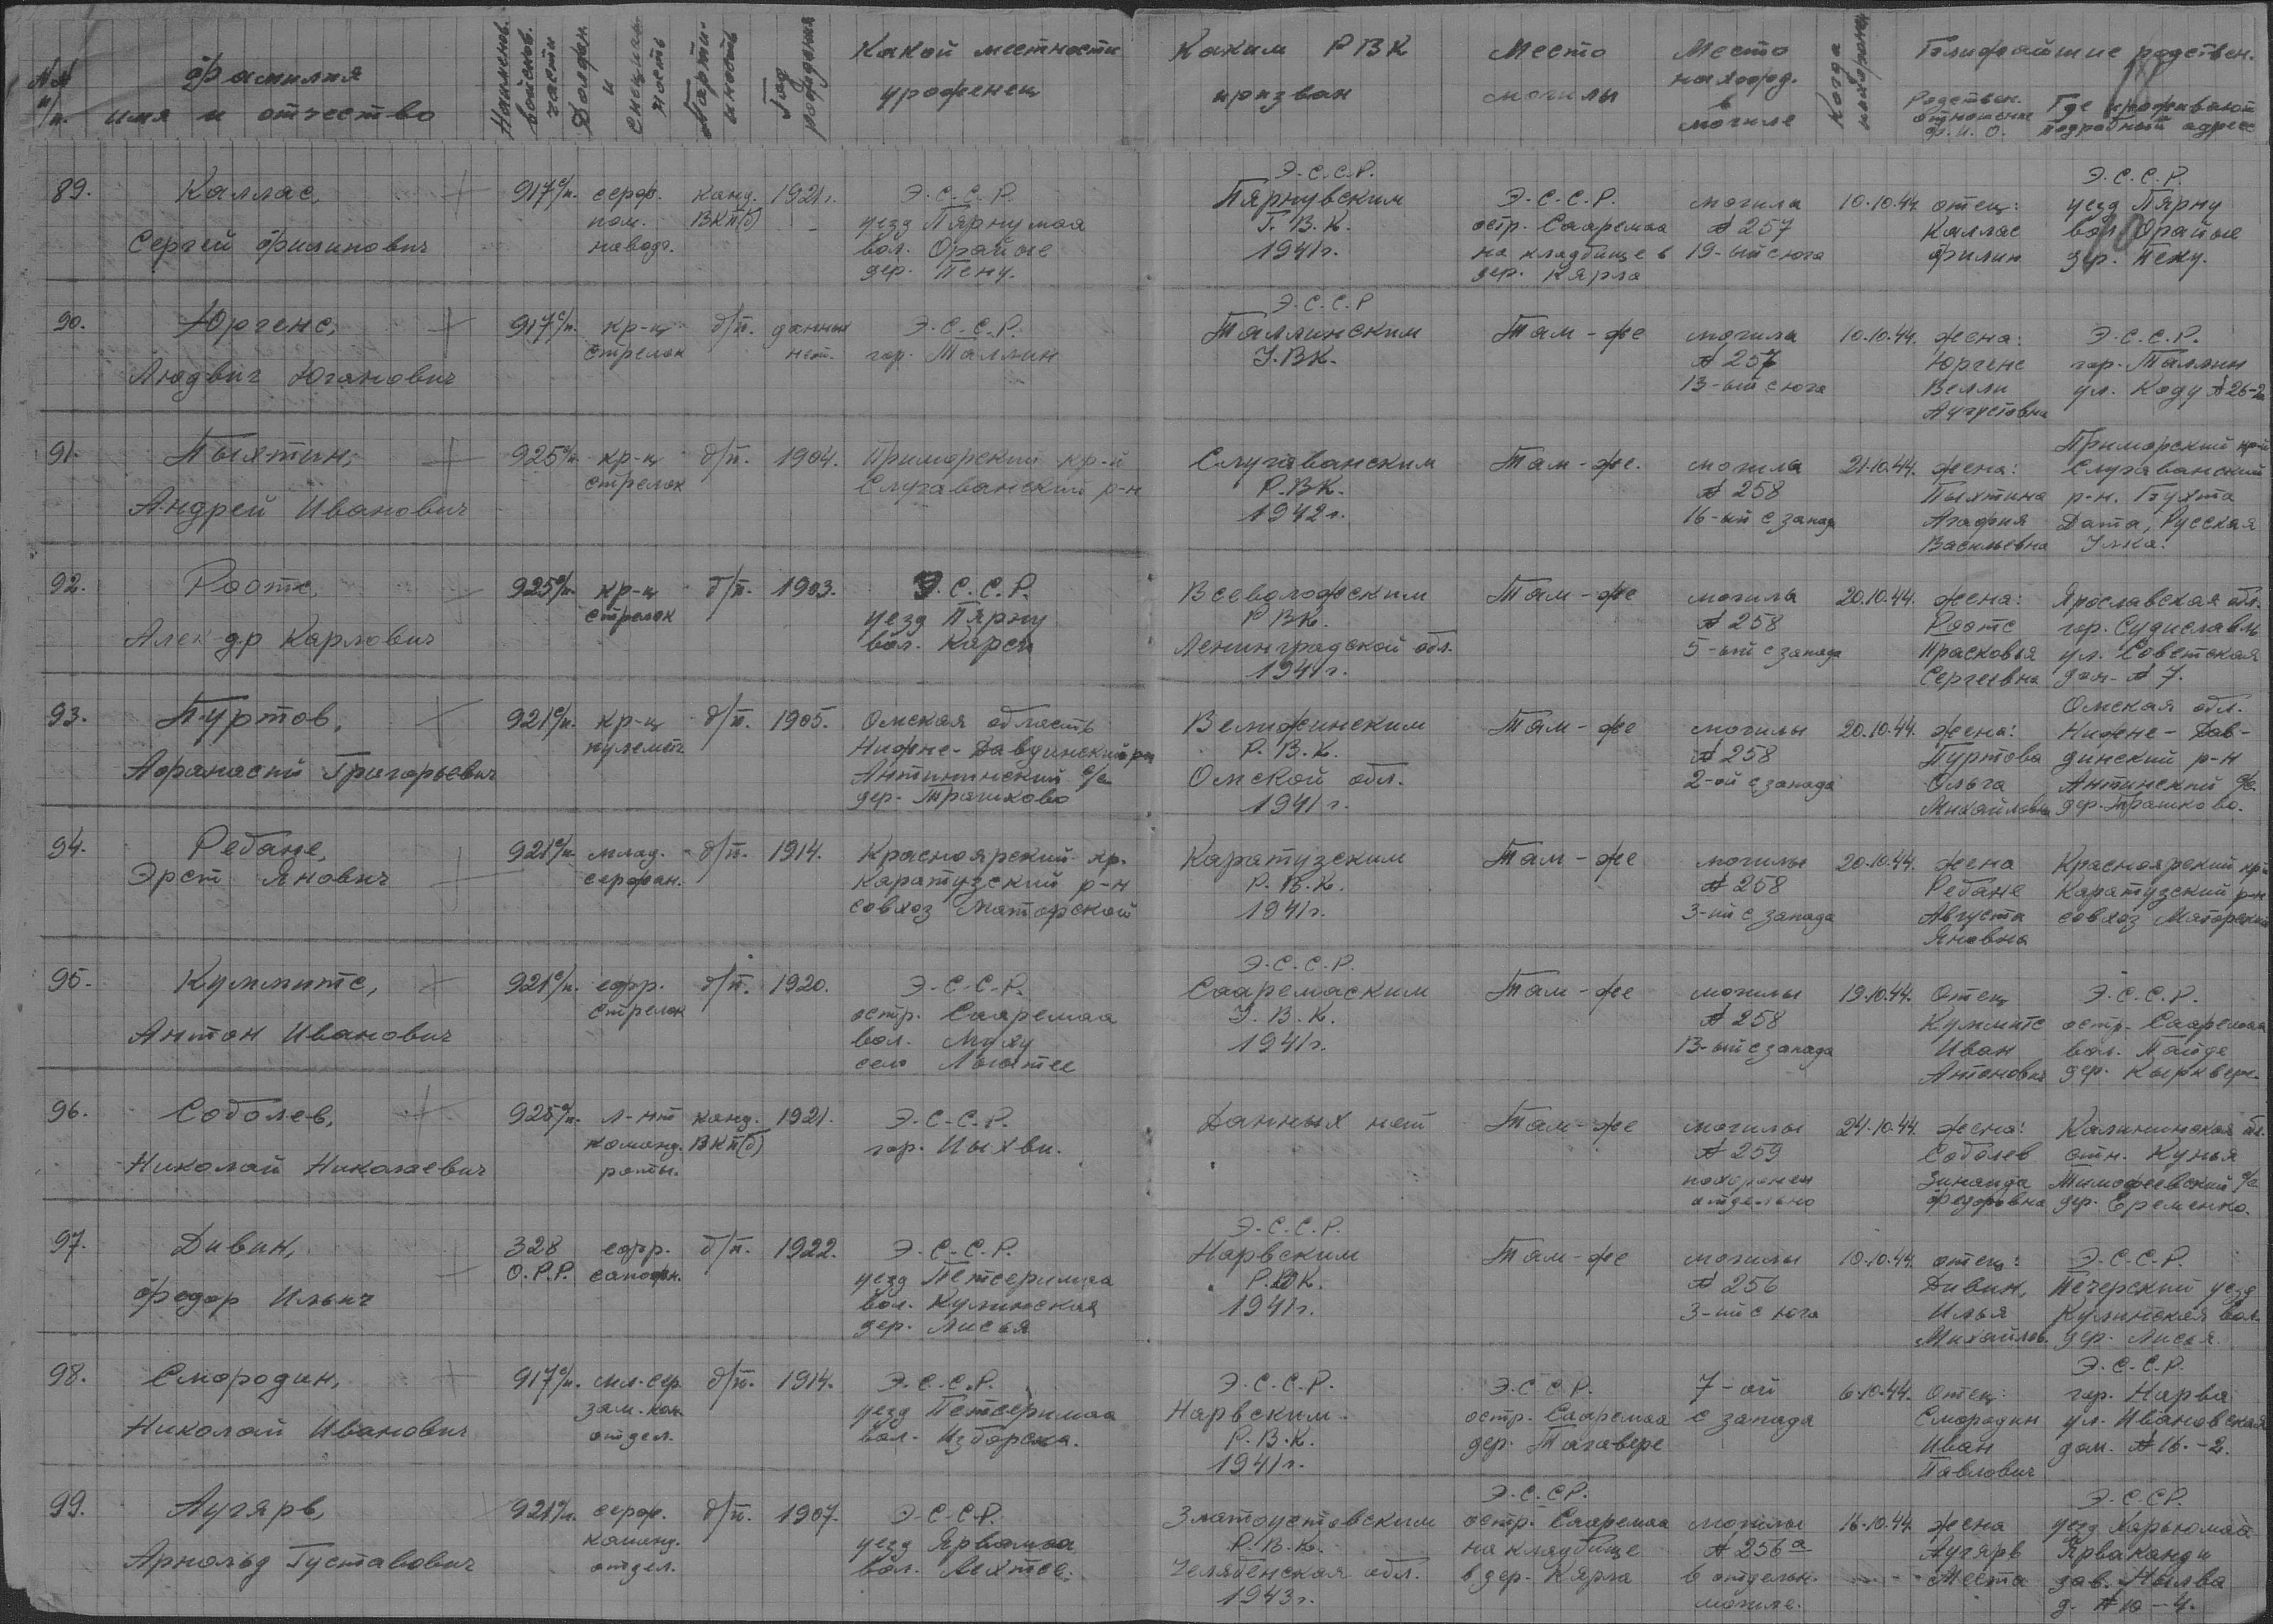 №№ п/п. Фамилия имя и отчество Наименов. войсков. части Должн. и специальность Партийность Год рождения Какой местности уроженец Каким РВК призван Место могилы Место нахожд. в могиле Когда похоронен Ближайшие родствен. Родствен. отношение Ф.И.О. Где проживают подробный адрес
Э.С.С.Р. Э.С.С.Р.
89. Каллас, 917 с/п. серж. канд. 1921г. Э.С.С.Р. Пярнувским Э.С.С.Р. могила 10.10.44. отец: уезд Пярну
пом. ВКП(б) уезд Пярнумаа Г.В.К. остр. Сааремаа № 257 Каллас вол. Орайые
Сергей Филипович наводч. вол. Орайые 1941г. на кладбище в 19-ый с юга Филип дер. Пену.
дер. Пену. дер. Кярла
Э.С.С.Р
90. Юргенс, 917 с/п. кр-ц б/п. данных Э.С.С.Р. Таллинским Там-же могила 10.10.44. жена: Э.С.С.Р.
стрелок нет. гор. Таллин У.ВК. № 257 Юргенс гор. Таллин
Людвиг Юганович 13-ый с юга Велли ул. Коду № 26-2
Аугустовна
Приморский кр-й
91. Пыхтин, 925 с/п кр-ц б/п. 1904. Приморский кр-й Слугаванским Там-же. могила 21.10.44. жена: Слугаванский
стрелок Слугаванский р-н Р.ВК. № 258 Пыхтина р-н. Бухта
Андрей Иванович 1942г. 16-ый с запада Агафия Дата, Русская
Васильевна Улка.
92. Роотс, 925 с/п. кр-ц б/п. 1903. Э.С.С.Р. Всеволожским Там-же могила 20.10.44. жена: Ярославская обл.
стрелок уезд Пярну РВК. № 258 Роотс гор. Судиславль
Алек-др Карлович вол. Карси Ленинградской обл. 5-ый с запада Прасковья ул. Советская
1941г. Сергеевна дом № 7.
Омская обл.
93. Пуртов, 921 с/п. кр-ц б/п. 1905. Омская область Велижинским Там-же могилы 20.10.44. жена: Нижне-Дав-
пулемётч Нижне-Давдинский рн Р.В.К. № 258 Пуртова динский р-н
Афанасий Григорьевич Антипинский с/с Омской обл. 2-ой с запада Ольга Антинский с/с.
дер. Трашково 1941г. Михайловна дер. Трашково.
94. Ребане, 921 с/п. млад. б/п. 1914. Красноярский кр. Каратузским Там-же могилы 20.10.44. жена Красноярский кр-й
Эрст Янович сержан. Каратузский р-н Р.В.К. № 258 Ребане Каратузский р-н
совхоз Маторской 1941г. 3-ий с запада Августа совхоз Маторский
Яновна
Э.С.С.Р.
95. Куммитс, 921 с/п. ефр. б/п. 1920. Э.С.С.Р. Сааремаским Там-же могилы 19.10.44. Отец Э.С.С.Р.
стрелок остр. Сааремаа У.В.К. № 258 Куммитс остр. Сааремаа
Антон Иванович вол. Муху 1941г. 13-ый с запада Иван вол. Пайде
село Льотсе Антонович дер. Кыркверe.
96. Соболев, 925 с/п. л-нт канд. 1921. Э.С.С.Р. Данных нет Там-же могилы 24.10.44. жена: Калининская обл.
команд. ВКП(б) гор. Иыхви. № 259 Соболев отн. Кунья
Николай Николаевич роты. похоронен Зинаида Тимофеевский с/с
отдельно Федоровна дер. Еременко.
Э.С.С.Р.
97. Дивин, 328 ефр. б/п. 1922. Э.С.С.Р. Нарвским Там-же могилы 10.10.44. отец: Э.С.С.Р.
О.Р.Р. сапожн. уезд Петсеримаа Р.ВК. № 256 Дивин, Печерский уезд
Федор Ильич вол. Кулинская 1941г. 3-ий с юга Илья Кулинская вол.
дер. Лисья Михайлов. дер. Лисья.
Э.С.С.Р.
98. Смородин, 917 с/п. мл. сер б/п. 1914. Э.С.С.Р. Э.С.С.Р. Э.С.С.Р. 7-ой 6.10.44. Отец: гор. Нарва
зам. ком. уезд Петсеримаа Нарвским остр. Сааремаа с запада Смородин ул. Ивановская
Николай Иванович отдел. вол. Изборска. Р.В.К. дер. Тагавере Иван дом. № 16.-2.
1941г. Павлович
Э.С.С.Р. Э.С.С.Р.
99. Аугярв, 921 с/п. серж. б/п. 1907. Э.С.С.Р. Златоустовским остр. Сааремаа могилы 16.10.44. жена уезд Харьюмаа
команд. уезд Ярвамаа Р.В.К. на кладбище № 256 а Аугярв Ярваканди
Арнольд Густавович отдел. вол. Лехтсе. Челябенская обл. в дер. Кярла в отдельн. Меета зав. Нылва
1943г. могиле. д. № 10-4.